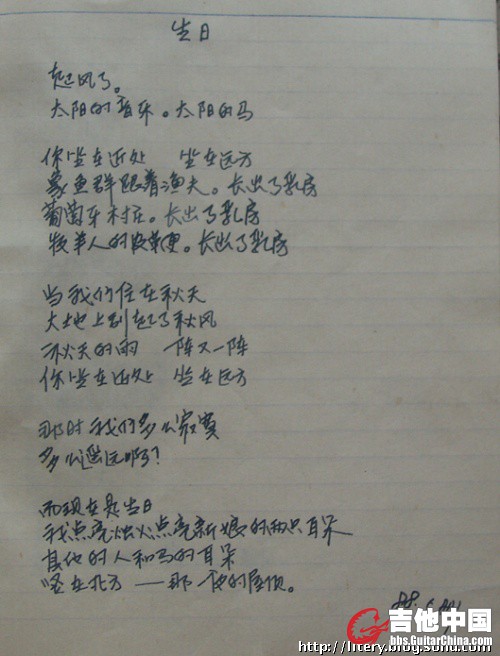 生日
起风了。
太阳的音乐。太阳的马
你坐在近处 坐在远方
象鱼群跟着渔夫。长出了乳房
葡萄牙村庄。长出了乳房
牧羊人的皮鞭。长出了乳房
当我们住在秋天
大地上刮起了秋风
秋天的雨 一阵又一阵
你坐在近处 坐在远方
那时我们多么寂寞
多么遥远啊?
而现在是生日
我点亮烛火点亮新娘的两只耳朵
其他的人和马的耳朵
竖在北方——那一夜的屋顶。
吉他中国
bbs.GuitarChina.com
http://litery.blog.sohu.com